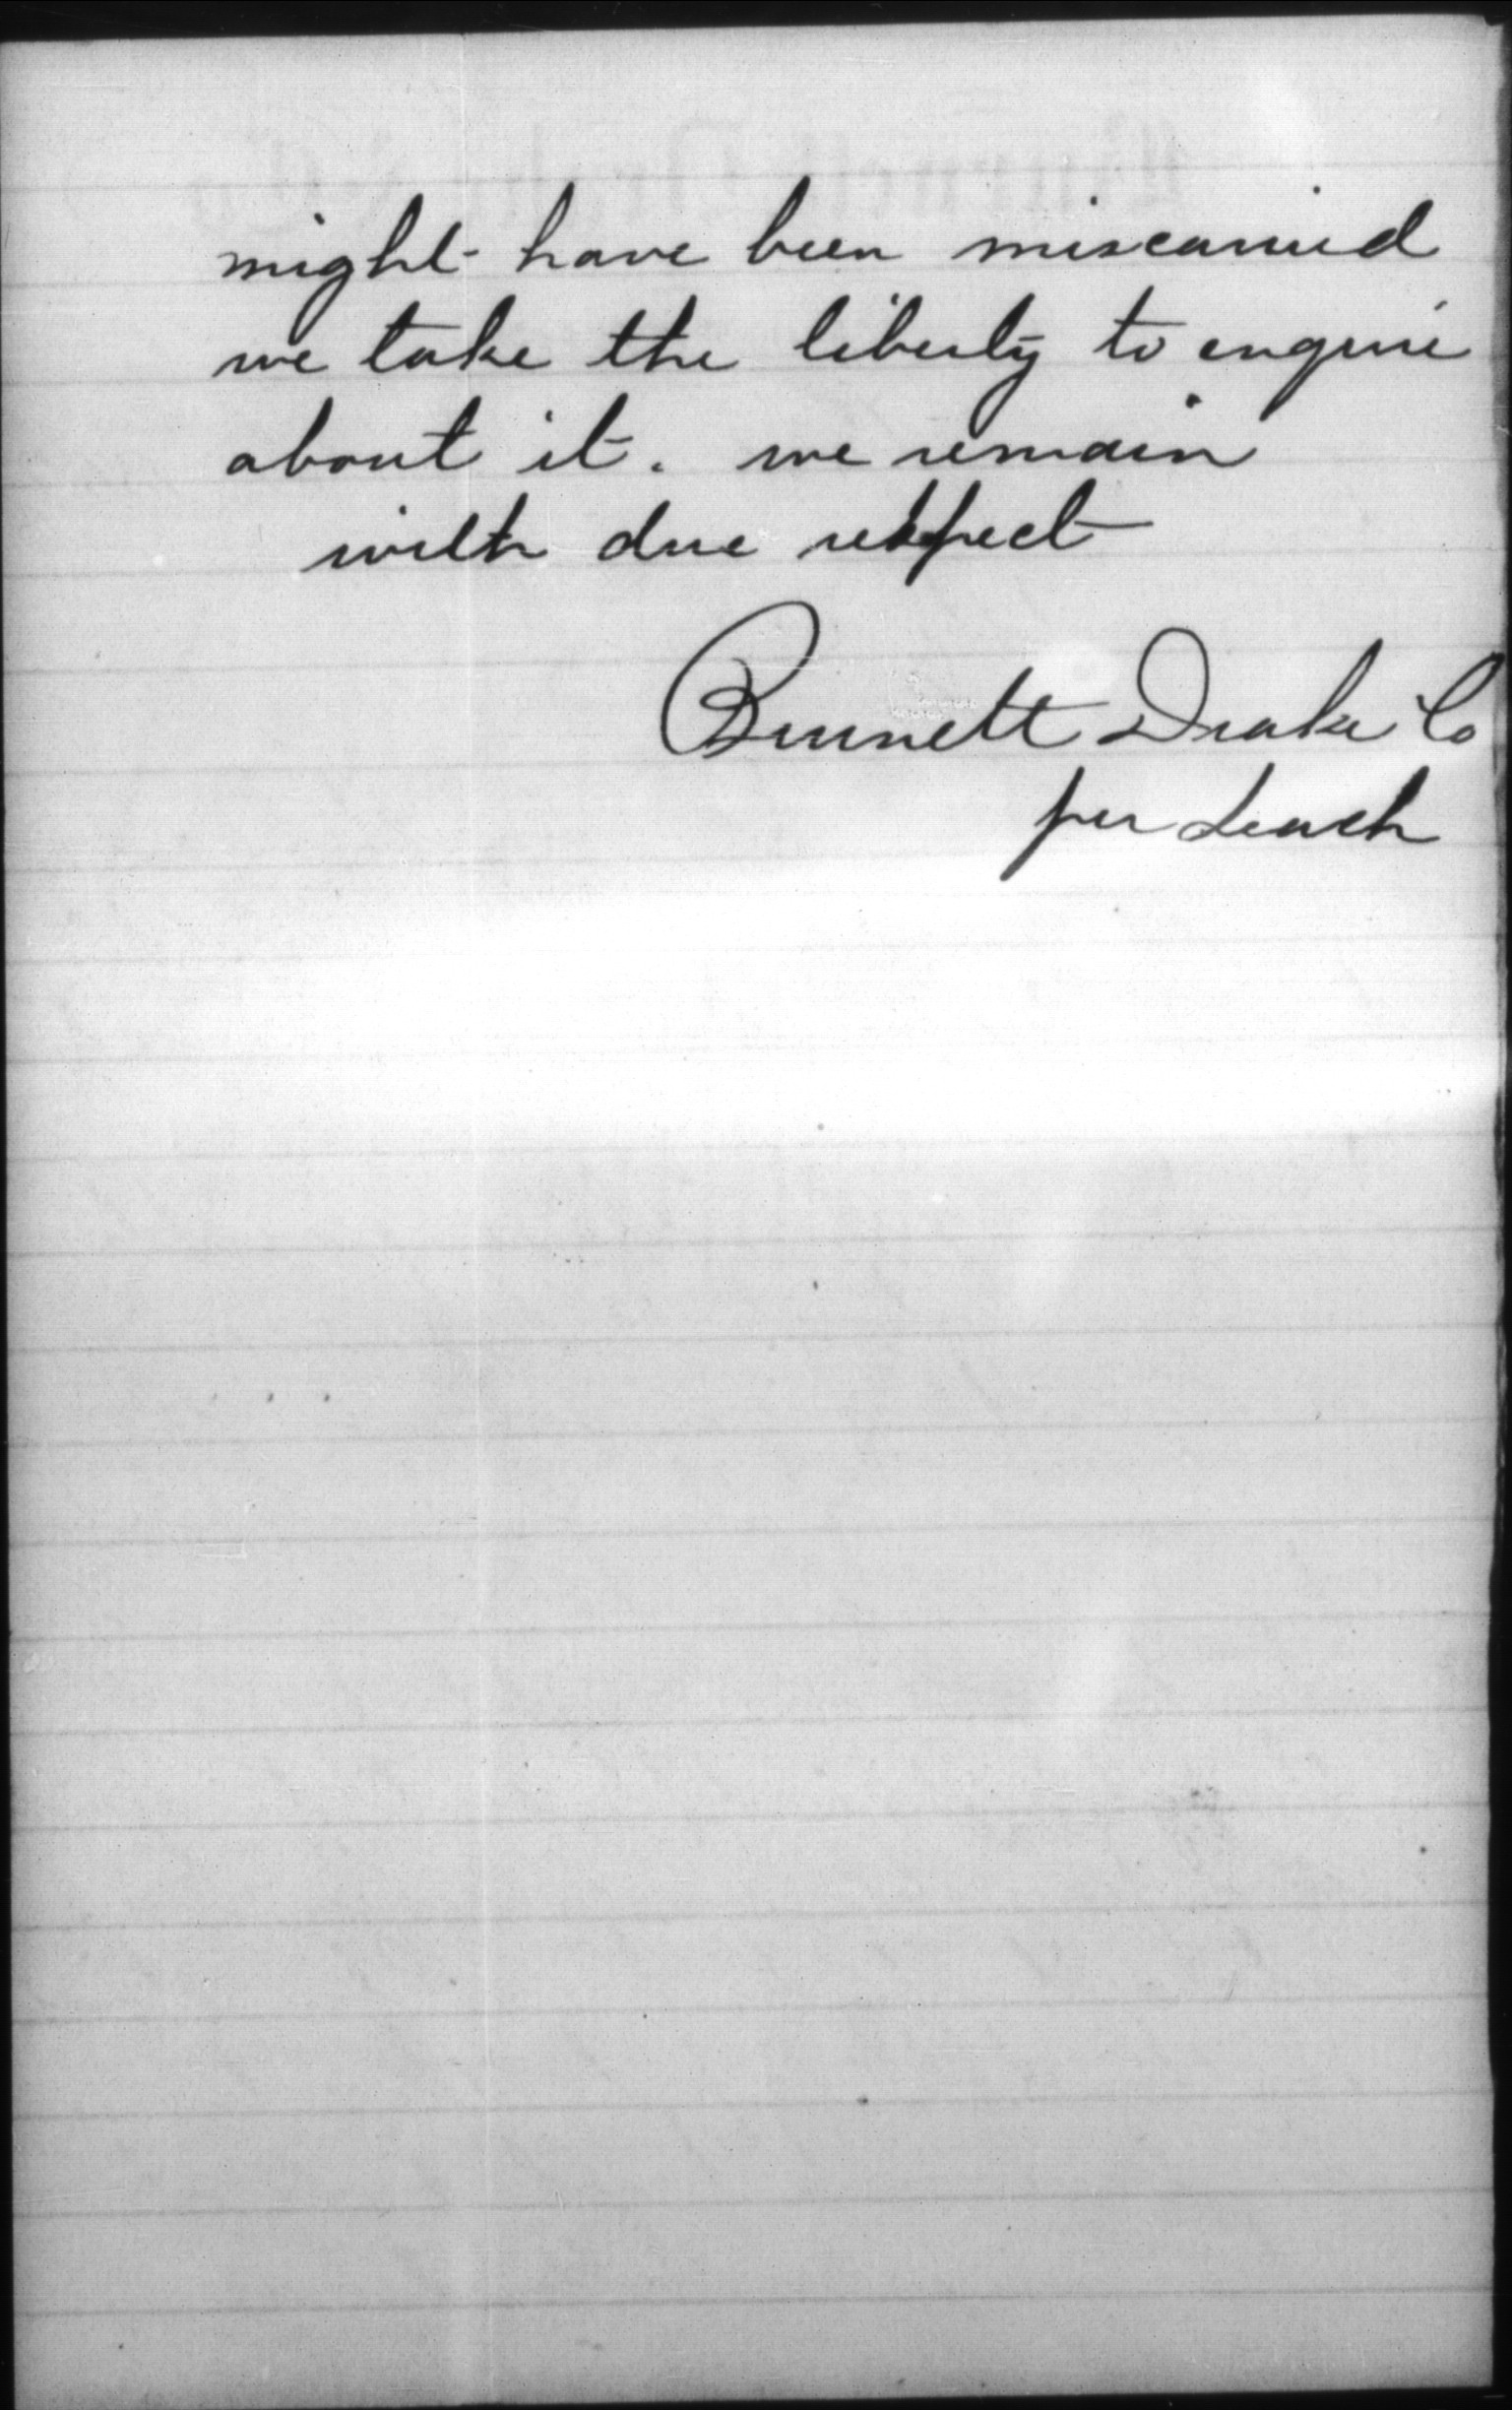 might have been miscarried
we take the liberty to enquire
about it. we remain
with due respect
Bennett Drake Co
per Leach